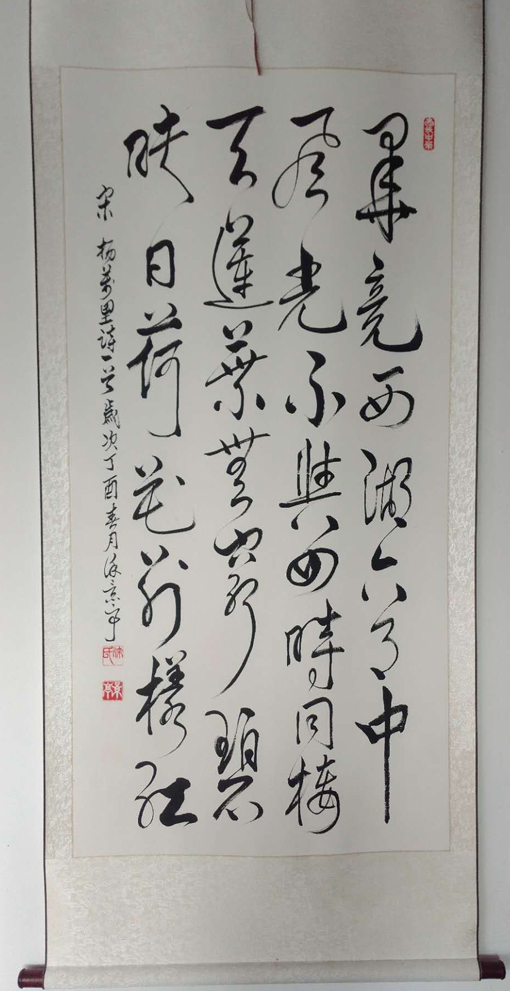 畢竟西湖六月中
風光不與四時同接
天蓮葉無窮碧
映日荷花別樣紅
宋 楊萬里詩一首 歲次丁酉春月徐景